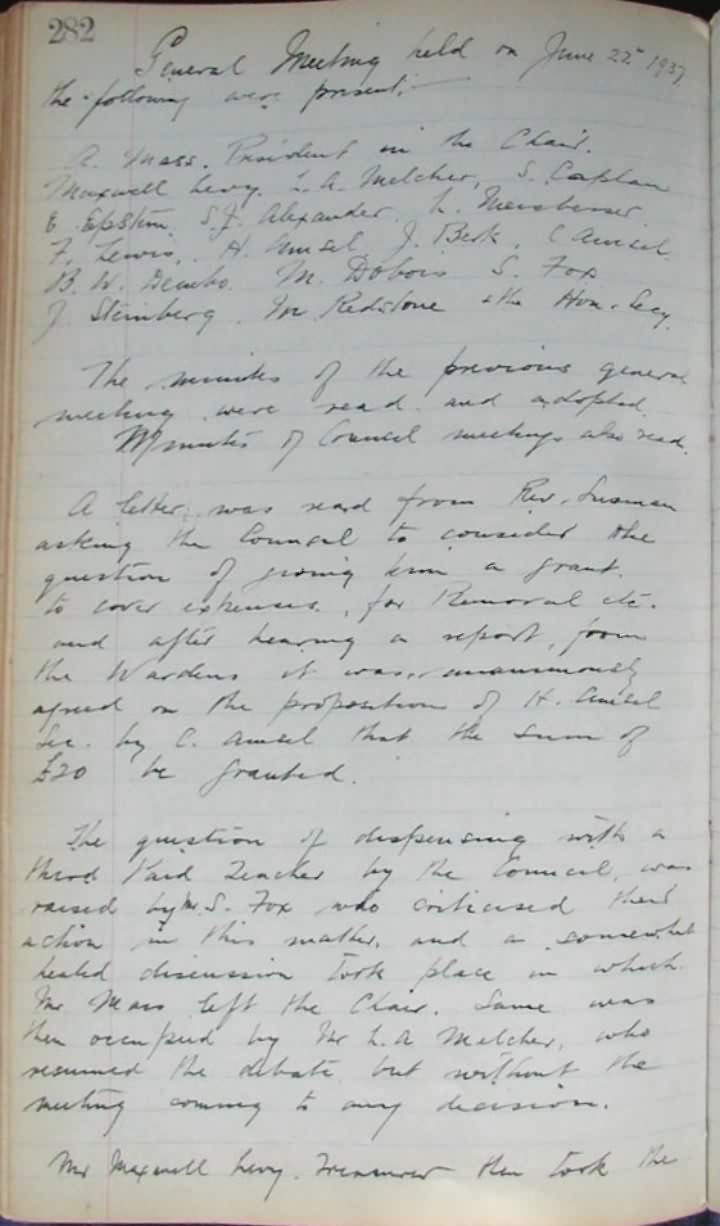 282
General Meeting held on June 22nd 1937
the following were present:-
A. Mass. President in the Chair.
Maxwell Levy. L.A. Melcher, S. Caplan
E Epstein. S.J. Alexander. L.
F. Lewis, H. Amsel J. Berk, C Amsel.
B. W. Dembo. M. Dobois S. Fox
J. Steinberg. Redstone & the Hon. Secy.
The minutes of the previous general
meeting were read and adopted.
Minutes of Council meetings also read.
A letter was read from Rev. Susman
asking the Council to consider the
question of giving him a grant.
to cover expenses, for Removal etc.
and after hearing a report, from
the Wardens it was, unanimously
agreed on the proposition of H. Amsel
Sec. by C. Amsel that the sum of
£20 be granted.
The question of dispensing with a
third Paid Teacher by the Council, was
raised by Mr. S. Fox who criticised their
action in this matter, and a somewhat
heated discussion took place in which
Mr Mass left the Chair. Same was
then occupied by Mr L.A Melcher, who
resumed the debate but without the
meeting coming to any decision.
Mr Maxwell Levy. Treasurer then took the